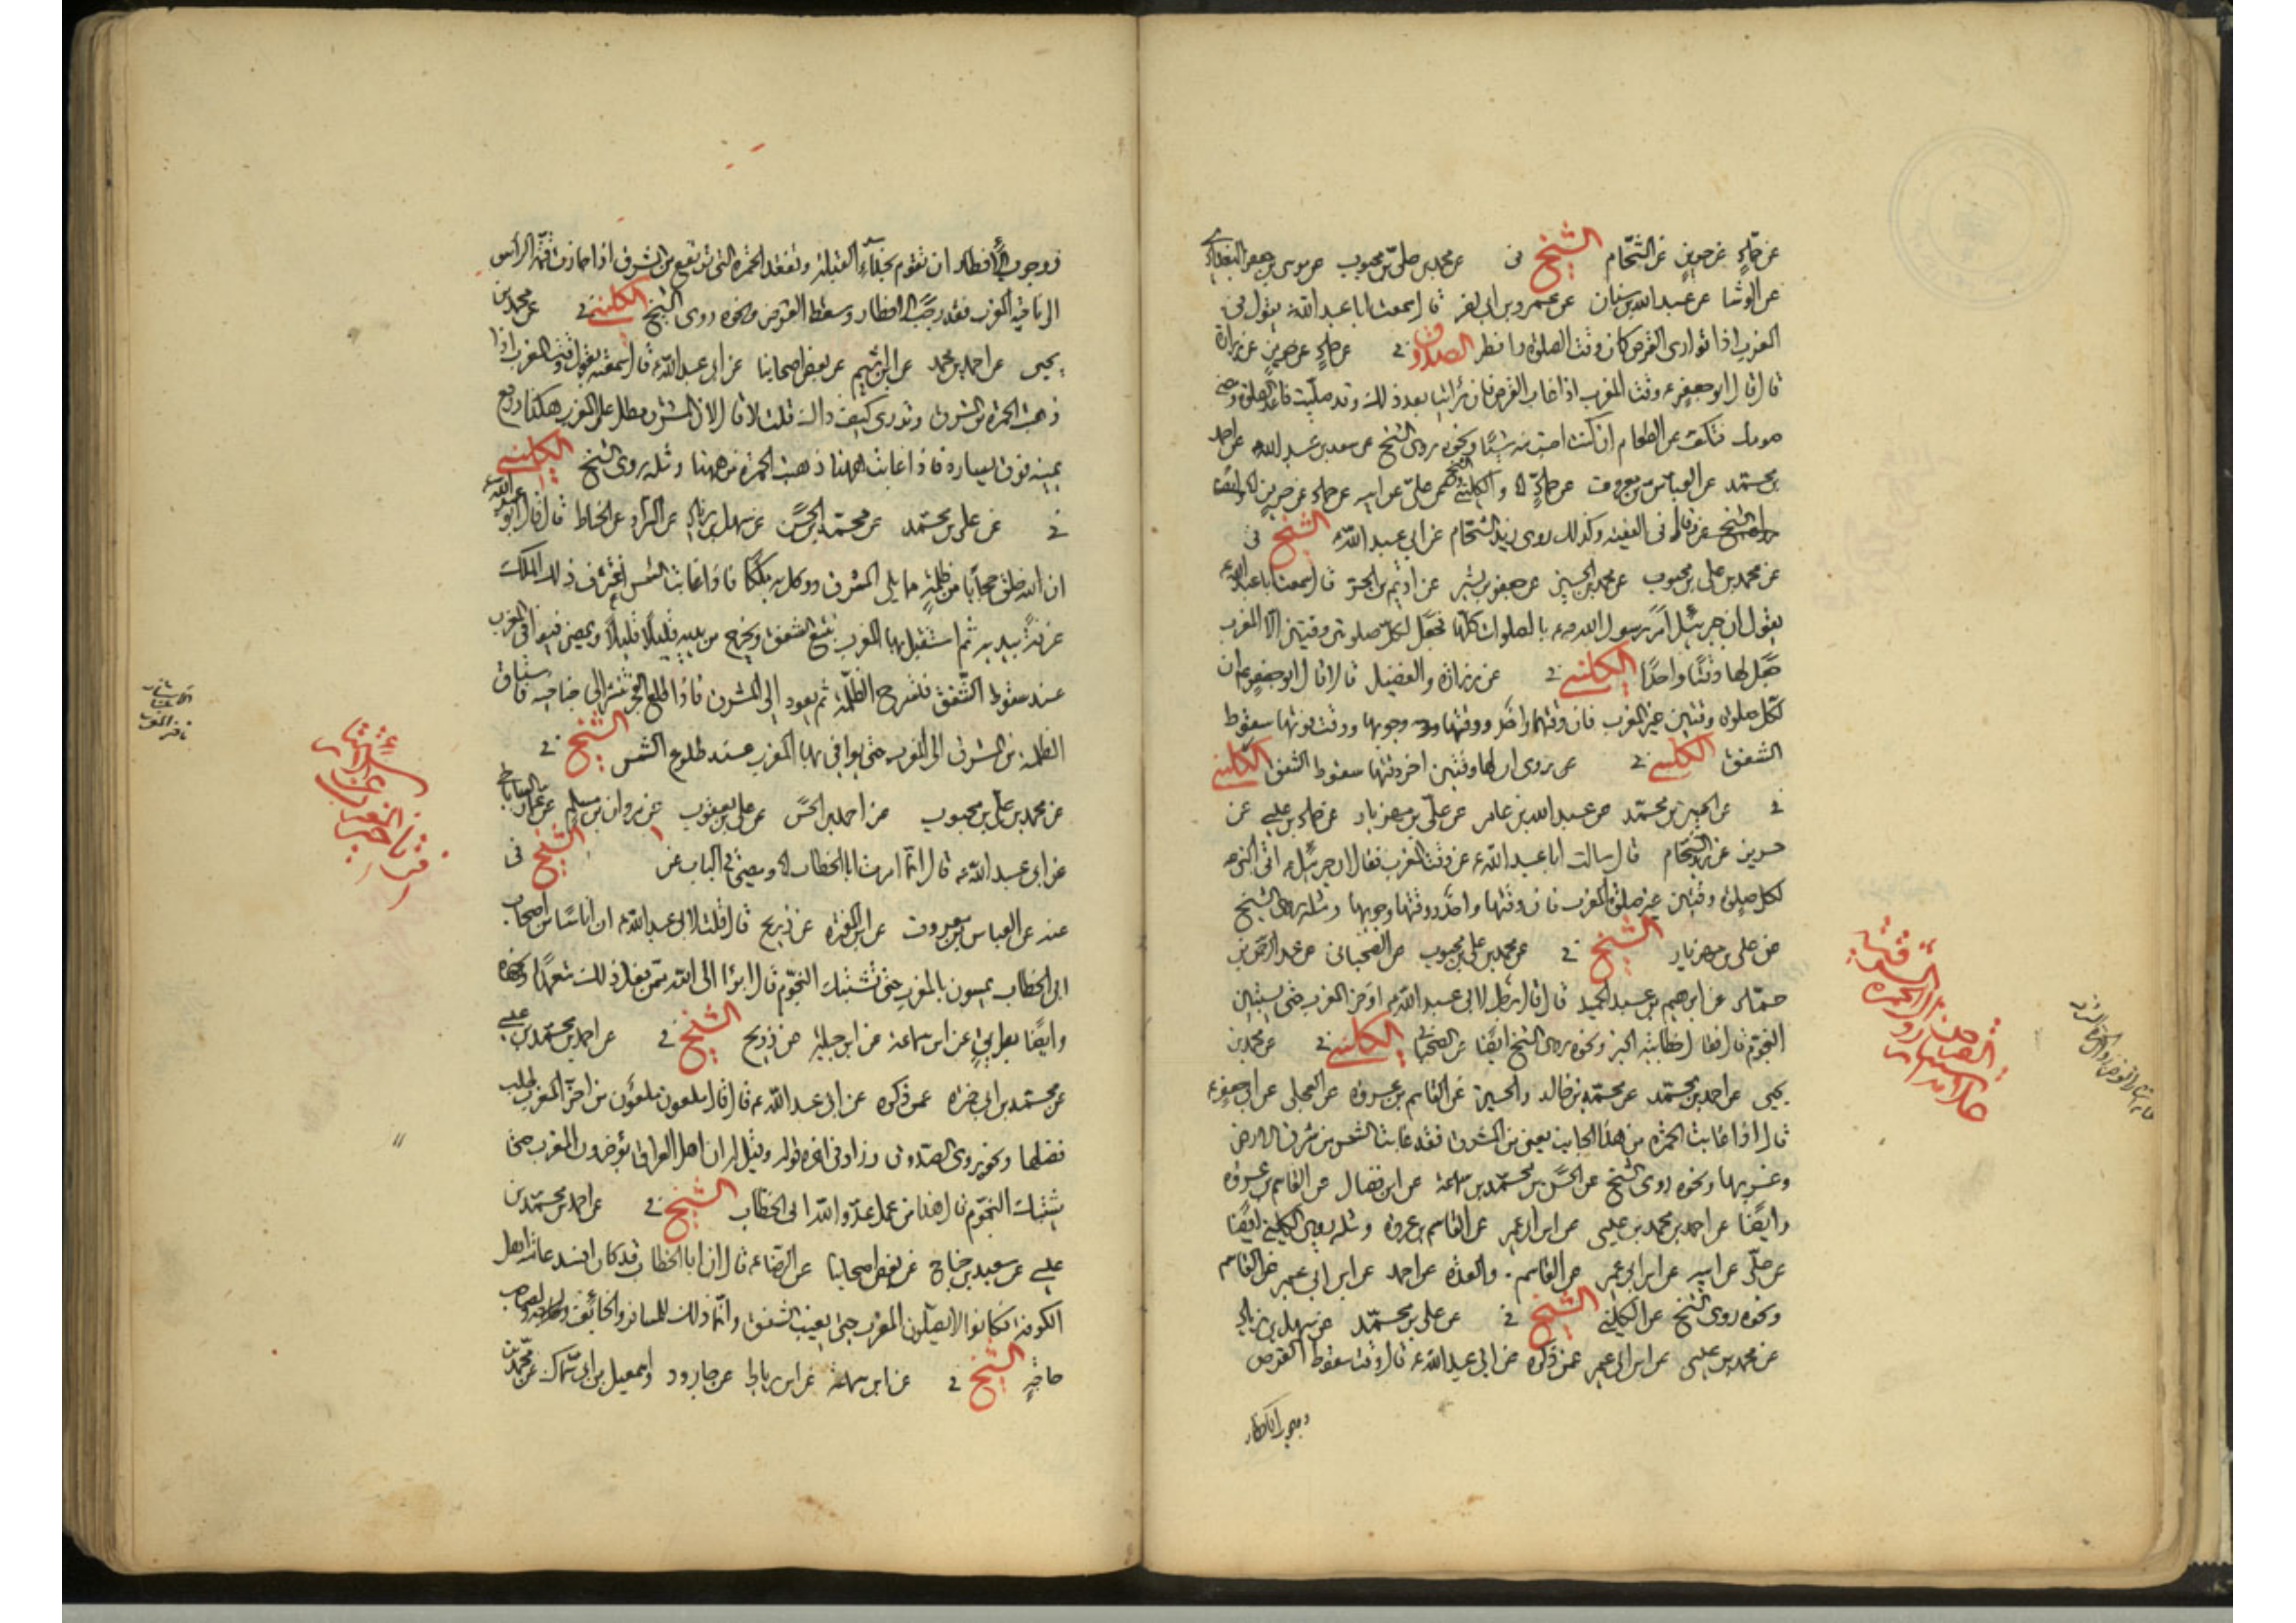 عن حماد عن حريز عن الشحام الشيخ فى عن محمد بن علي بن محبوب عن موسى بن جعفر البغدادي
عن الوشا عن عبد الله بن سنان عن عمرو بن ابى نصر قال سمعت ابا عبد الله ع يقول فى
المغرب اذا توارى القرص كان وقت الصلوة وافطر الصدوق فى عن حماد عن حريز عن زرارة
قال قال ابو جعفر ع وقت المغرب اذا غاب القرص فان رأيته بعد ذلك وقد صليت فاعد الصلوة ومضى
صومك وتكف عن الطعام ان كنت اصبت منه شيئا ونحوه روى الشيخ عن سعد بن عبد الله عن احمد
بن محمد عن العباس بن معروف عن حماد والكلينى عن على عن ابيه عن حماد عن حريز
فى الفقيه وكذلك روى زيد الشحام عن ابى عبد الله ع الشيخ فى
عن محمد بن على بن محبوب عن محمد بن الحسين عن جعفر بن بشير عن اديم بن الحر قال سمعت ابا عبد الله ع
يقول ان جبرئيل امر رسول الله ص بالصلوات كلها فجعل لكل صلوة وقتين الا المغرب
جعل لها وقتا واحدا الكلينى فى عن زرارة والفضيل قالا قال ابو جعفر ع ان
لكل صلوة وقتين غير المغرب فان وقتها واحد ووقتها وجوبها ووقت فوتها سقوط
الشفق الكلينى فى عن روى ان لها وقتين اخر وقتها سقوط الشفق الكلينى
فى عن الحسين بن محمد عن عبد الله بن عامر عن على بن مهزيار عن حماد بن عيسى عن
حريز عن زيد الشحام قال سالت ابا عبد الله ع عن وقت المغرب فقال ان جبرئيل ع اتى النبى ص
لكل صلوة وقتين غير صلوة المغرب فان وقتها واحد ووقتها وجوبها ومثله روى الشيخ
عن على بن مهزيار الشيخ فى عن محمد بن على بن محبوب عن الصهبانى عن عبد الرحمن بن
حماد عن ابرهيم بن عبد الحميد قال قال رجل لابى عبد الله ع اؤخر المغرب حتى يستبين
النجوم قال فقال خطابية الخبر ونحوه روى الشيخ ايضا عن الصهبانى الكلينى فى عن محمد بن
يحيى عن احمد بن محمد عن محمد بن خالد والحسين عن القاسم بن عروة عن العجلى عن ابى جعفر ع
قال اذا غابت الحمرة من هذا الجانب يعنى من المشرق فقد غابت الشمس من شرق الارض
وغربها ونحوه روى الشيخ عن الحسن بن محمد بن سماعة عن ابن فضال عن القاسم بن عروة
وايضا عن احمد بن محمد بن عيسى عن ابن ابى عمير عن القاسم بن عروة ومثله روى الكلينى ايضا
عن على عن ابيه عن ابن ابى عمير عن القاسم والعدة عن احمد عن ابن ابى عمير عن القاسم
ونحوه روى الشيخ عن الكلينى الشيخ فى عن على بن محمد عن سهل بن زياد
عن محمد بن عيسى عن ابن ابى عمير عمن ذكره عن ابى عبد الله ع قال وقت سقوط القرص
ووجوب الافطار
ووجوب الافطار ان تقوم بحذاء القبلة وتفقد الحمرة التى ترتفع من المشرق اذا جازت قمة الراس
الى ناحية المغرب فقد وجب الافطار وسقط القرص ونحوه روى الشيخ الكلينى فى عن محمد بن
يحيى عن احمد بن محمد عن ابن اشيم عن بعض اصحابنا عن ابى عبد الله ع قال سمعته يقول وقت المغرب اذا
ذهبت الحمرة من المشرق وتدرى كيف ذاك قلت لا قال لان المشرق مطل على المغرب هكذا ورفع
يمينه فوق يساره فاذا غابت ههنا ذهبت الحمرة من ههنا ومثله روى الشيخ الكلينى
فى عن على بن محمد عن محمد بن الحسن عن سهل بن زياد عن السراد عن الخياط قال قال ابو عبد الله ع
ان الله خلق حجابا من ظلمة مما يلى المشرق ووكل به ملكا فاذا غابت الشمس اغترف ذلك الملك
غرفة بيديه ثم استقبل بها المغرب يتبع الشفق ويخرج من بين يديه قليلا قليلا ويمضى فيوافى المغرب
عند سقوط الشفق فتسرح الظلمة ثم يعود الى المشرق فاذا طلع الفجر نشر جناحيه فاستاق
الظلمة من المشرق الى المغرب حتى يوافى بها المغرب عند طلوع الشمس الشيخ فى
عن محمد بن على بن محبوب عن احمد بن الحسن عن على بن يعقوب عن مروان بن مسلم عن عمار الساباطى
عن ابى عبد الله ع قال انما امرت ابا الخطاب الشيخ فى
عنه عن العباس بن معروف عن ابن المغيرة عن ذريح قال قلت لابى عبد الله ع ان اناسا من اصحاب
ابى الخطاب يمسون بالمغرب حتى تشتبك النجوم قال ابرؤا الى الله ممن فعل ذلك متعمدا ونحوه
وايضا عن ابن سماعة عن ابن جبلة عن ذريح الشيخ فى عن احمد بن محمد بن عيسى
عن محمد بن ابى حمزة عمن ذكره عن ابى عبد الله ع قال قال ملعون ملعون من اخر المغرب طلب
فضلها ونحوه روى الصدوق وزاد فى اخره قوله وقيل له ان اهل العراق يؤخرون المغرب حتى
تشتبك النجوم قال هذا من عمل عدو الله ابى الخطاب الشيخ فى عن احمد بن محمد بن
عيسى عن سعيد بن جناح عن بعض اصحابنا عن الرضا ع قال ان ابا الخطاب قد كان افسد عامة اهل
الكوفة فكانوا لا يصلون المغرب حتى يغيب الشفق وانما ذلك للمسافر والخائف ولصاحب
حاجة الشيخ فى عن ابن سماعة عن ابن رباط عن جارود واسمعيل بن ابى سمال عن محمد بن